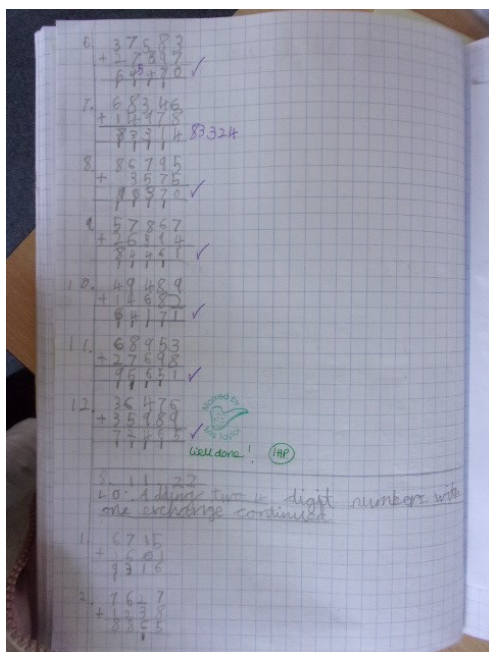 6. 37583
+ 27897
65470
7. 68346
+ 14978
83314 83324
8. 86795
+ 3575
90370
9. 57867
+ 26594
84461
10. 49489
+ 14682
64171
11. 68953
+ 27698
96651
12. 36476
+ 35989
72465
Marked by
Miss Taylor
Well done!
1HP
8. 11. 22
LO: Adding two 4 digit numbers with
one exchange continued
1. 6715
+ 2601
9316
2. 7627
+ 1238
8865